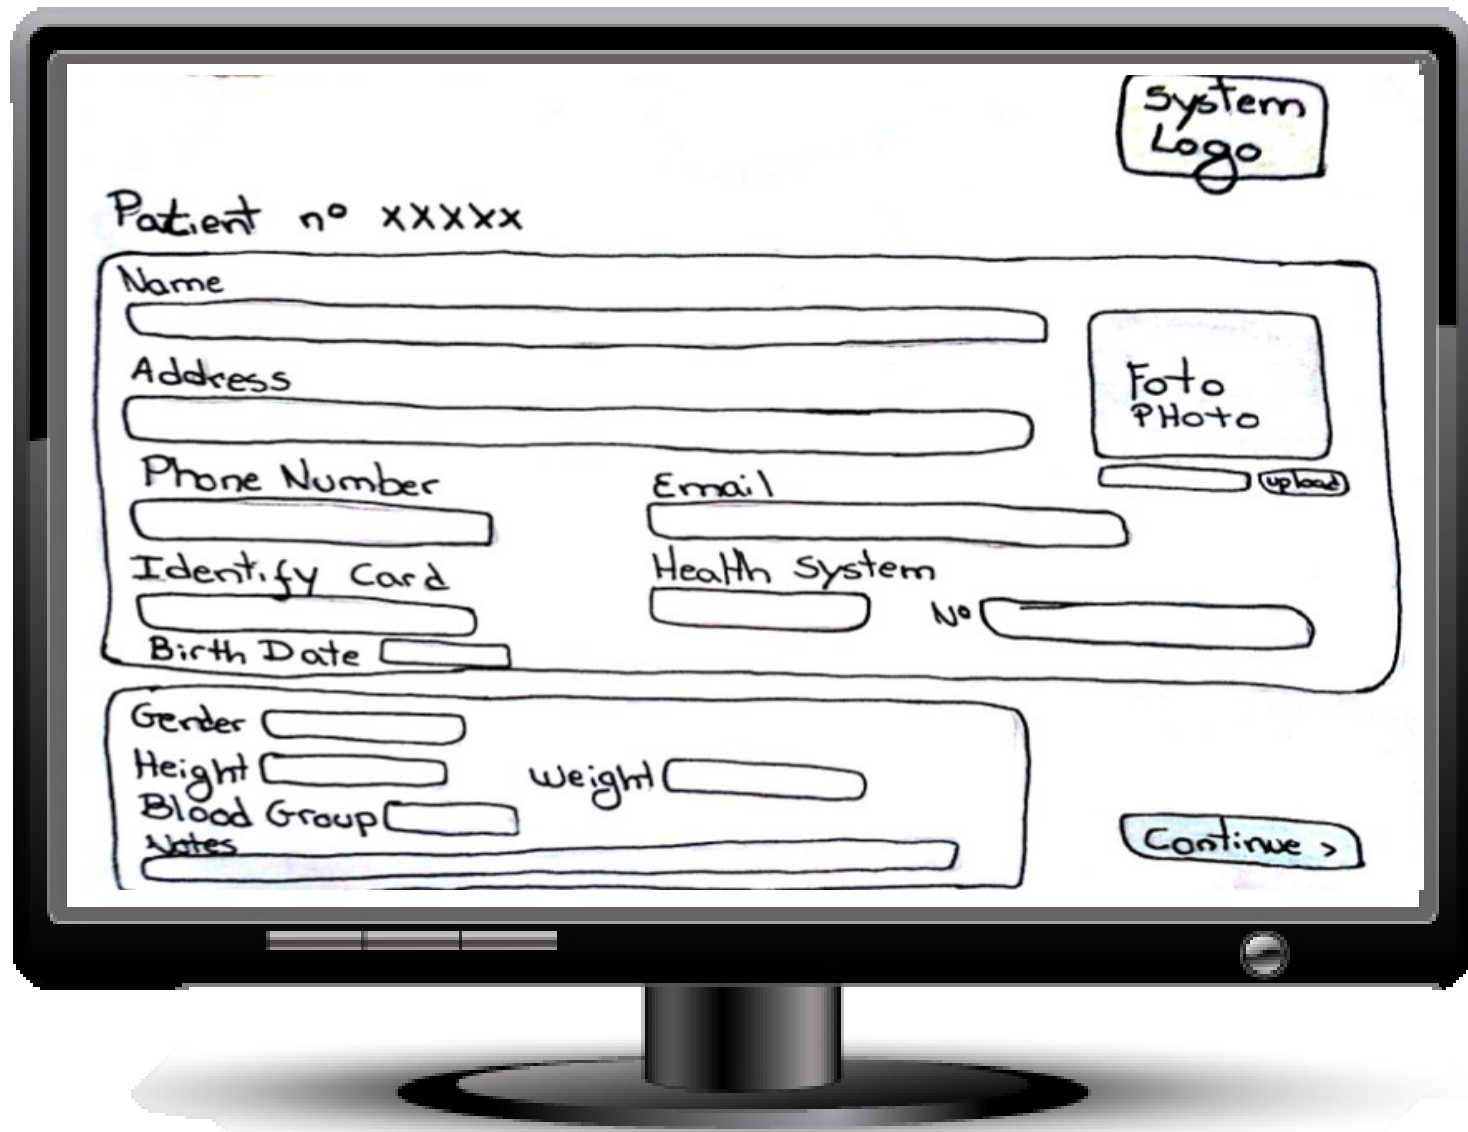 System
Logo
Patient nº xxxxx
Name
Address
Foto
PHoto
upload
Phone Number
Email
Identify Card
Health System
Nº
Birth Date
Gender
Height
Weight
Blood Group
Notes
Continue >